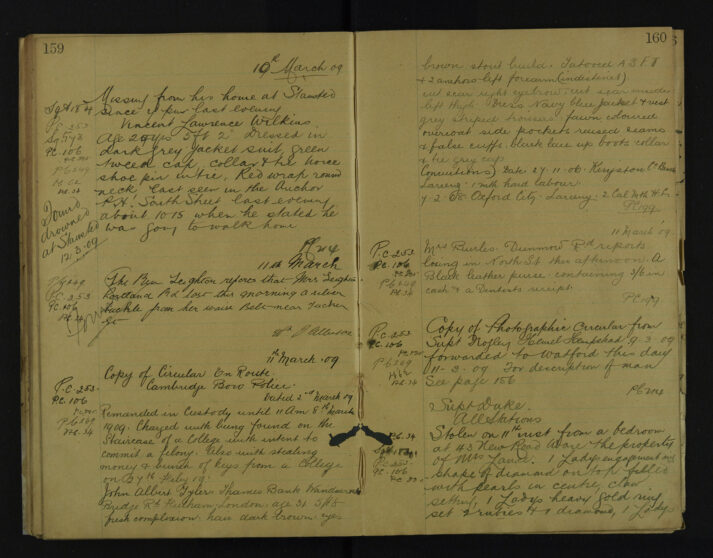 159
10th March 09
Missing from his home at Stansted
since 4 pm last evening
Vincent Lawrence Wilkins
Age 29 5 ft 2" Dressed in
dark grey jacket suit, green
tweed cap, collar & tie horse
shoe pin in tie, Red wrap round
neck last seen in the Anchor
P.H. South Street last evening
about 10.15 when he stated he
was going to walk home
PC 214
Found
drowned
at Stansted
12/3/09
11th March
The Byn Leighton reports that Mrs Leighton
Portland Rd lost this morning a silver
buckle from her waist Belt near Tucker
PC 253
PC 106
11th March 09
Copy of Circular En Route
Cambridge Boro Police
Dated 2nd March 09
P.C. 253
P.C. 106
Remanded in Custody until 11 Am 8th March
1909. Charged with being found on the
Staircase of a College with intent to
commit a felony. Also with stealing
money & bunch of keys from a College
on 27th Feby 09.
John Albert Tyler Thames Bank Wandsworth
Bridge Rd Fulham London age 31 5ft 8
fresh complexion hair dark brown eyes
160
brown stout build. Tatooed A.S.F.T
& 2 anchors left forearm (indistinct)
cut scar right eyebrow cut scar inside
left thigh Dress Navy blue jacket & vest
grey striped trousers fawn coloured
overcoat side pockets raised seams
& false cuffs black lace up boots collar
& tie grey cap
Convictions Date 27.11.06 Kingston
Larceny 1 mth hard labour
7.2.08 Oxford City Larceny 2 Cal Mth H.L.
PC 199
11 March 09
Mrs Dunmow Rd reports
losing in North St this afternoon a
Black leather purse containing 3/6 in
cash & a Dentists receipt.
PC 199
P.C. 253
P.C. 106
Copy of Photographic Circular from
Supt Hemel Hempstead 9.3.09
forwarded to Watford this day
11-3-09 For description of man
See page 156
PC 214
P.C. 253
P.C. 106
Supt Duke
All Stations
Stolen on 11th inst from a bedroom
at 43 New Road Ware the property
of Mrs Lance. 1 Ladys engagement ring
shape of diamond on top filled
with pearls in centre, claw
setting, 1 Ladys heavy gold ring
set 2 rubies & 1 diamond, 1 Ladys